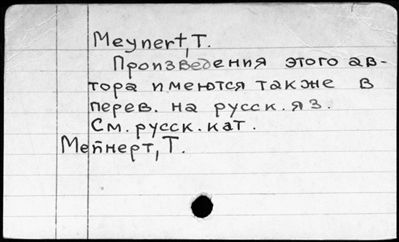 Meynert, T.
Произведения этого ав-
тора имеются также в
перев. на русск. яз.
См. русск. кат.
Мейнерт, Т.